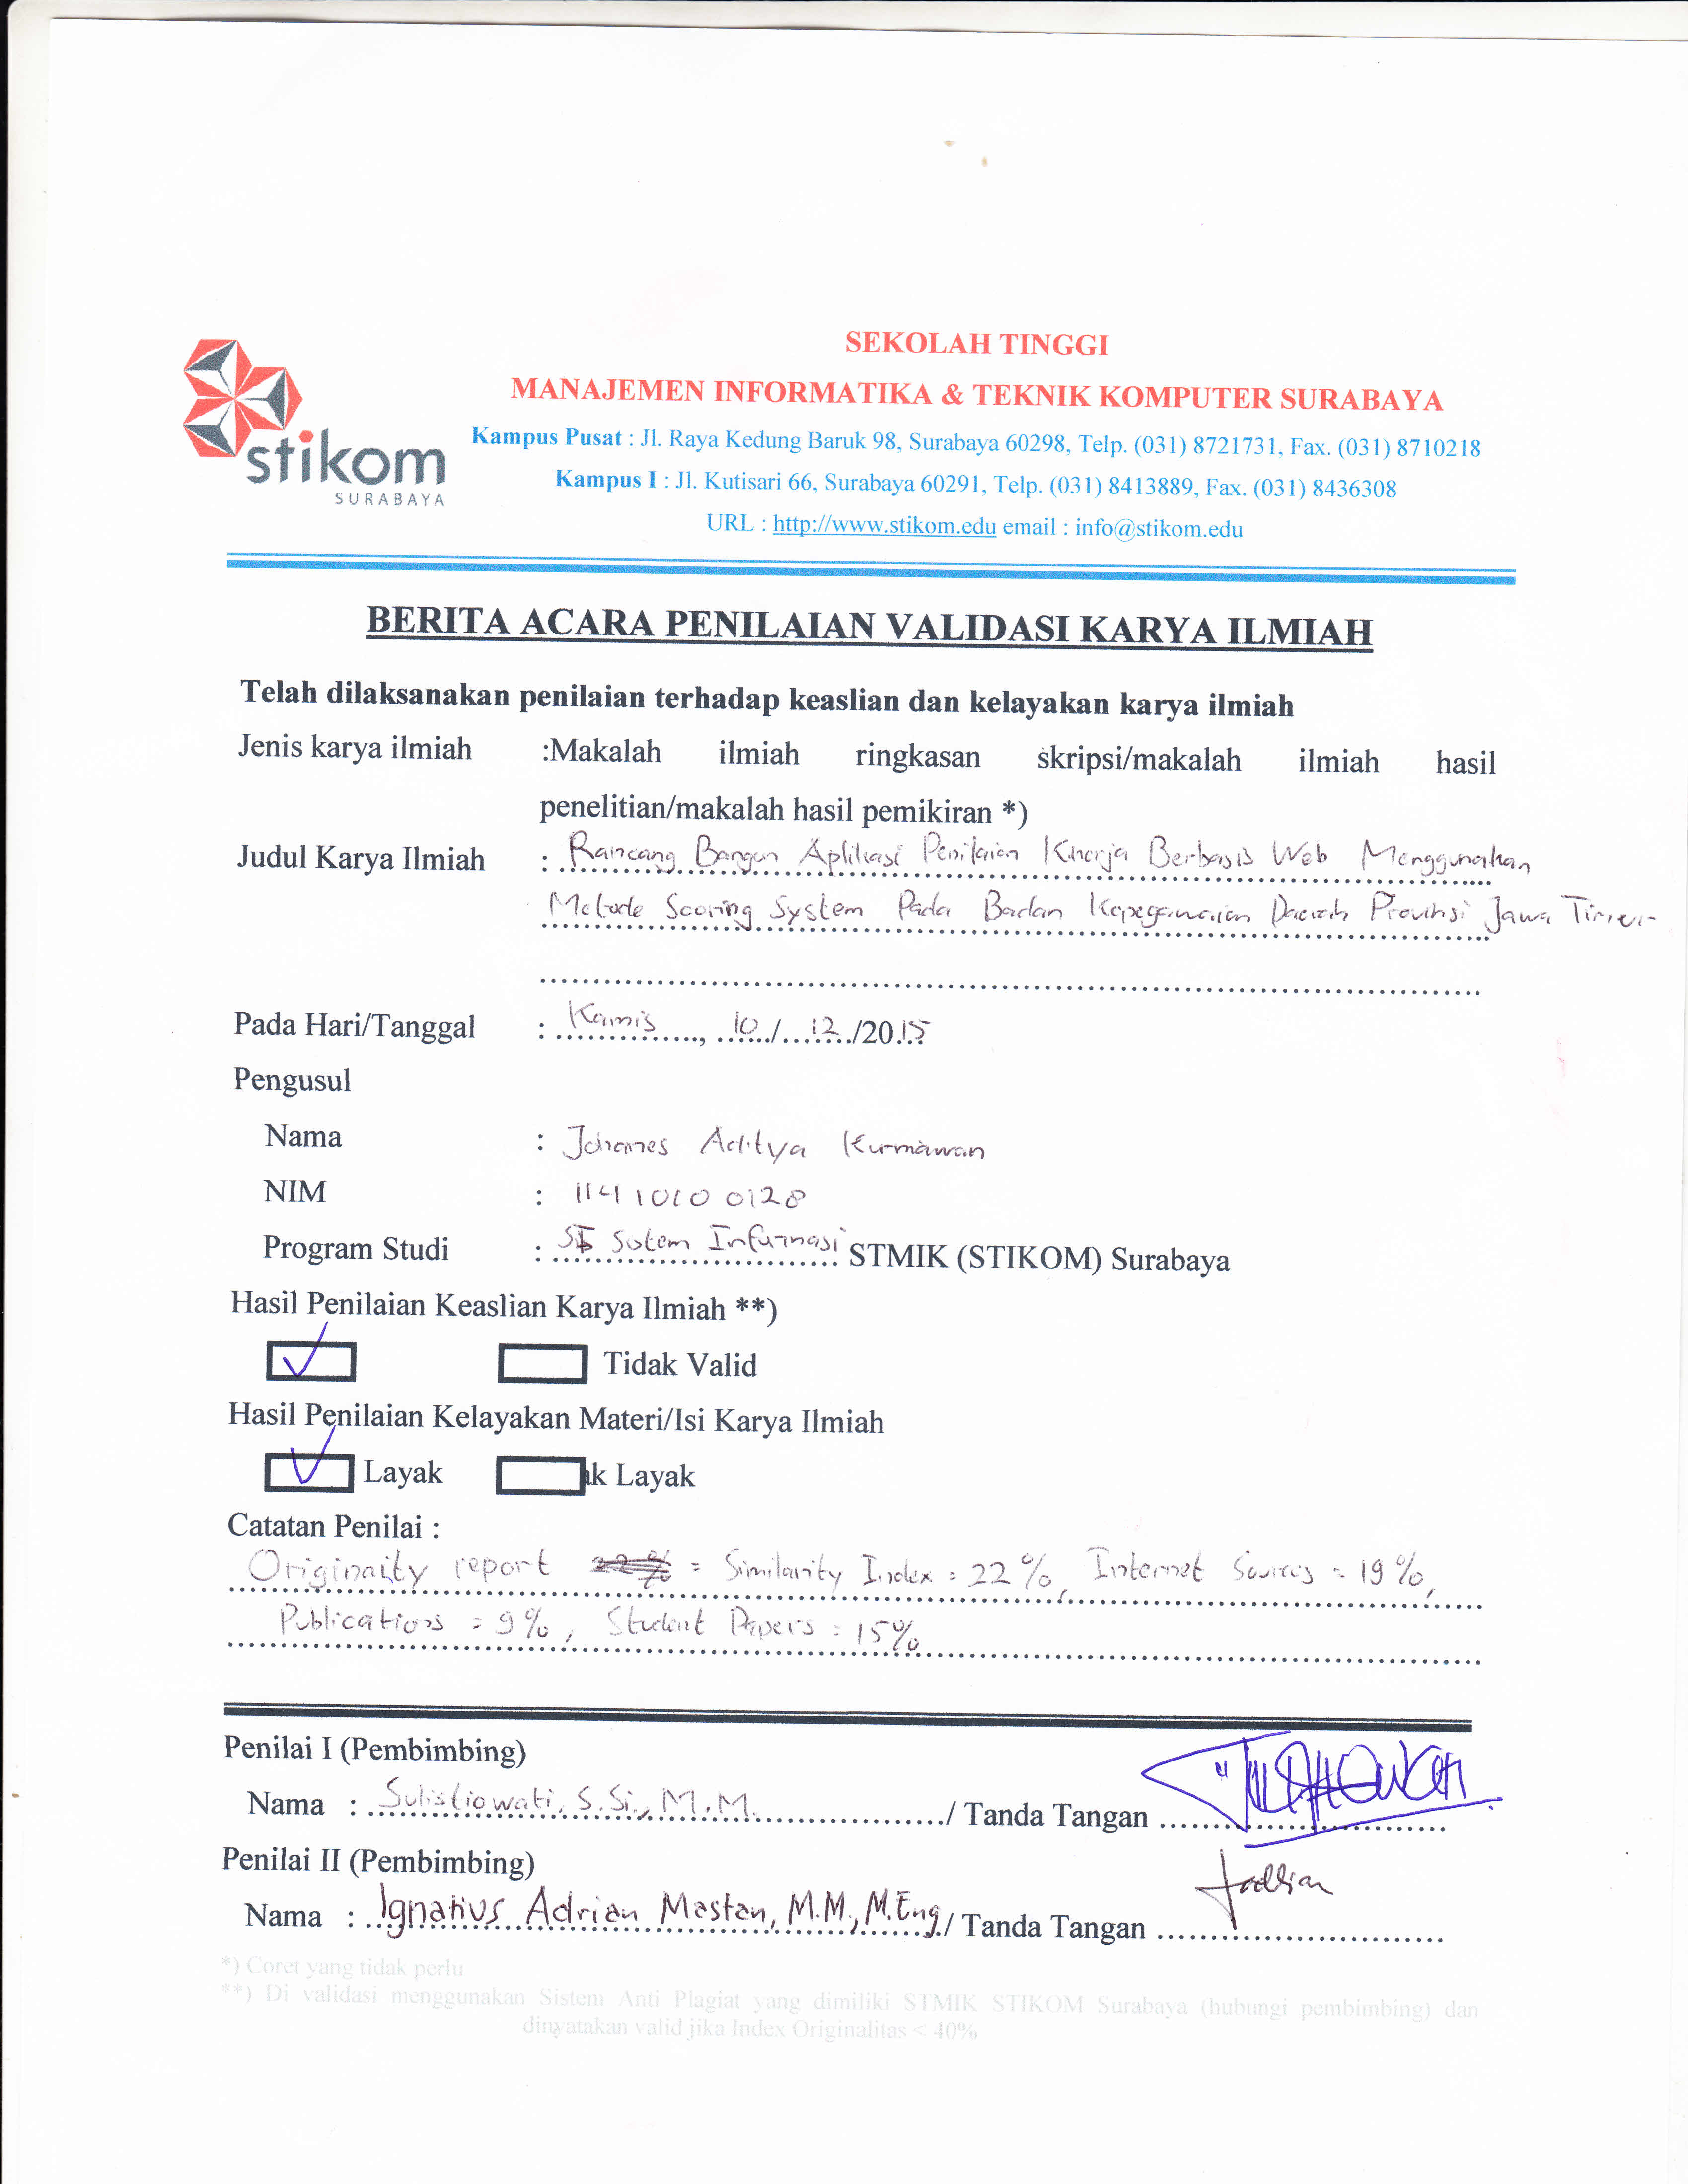 stikom
SURABAYA
SEKOLAH TINGGI
MANAJEMEN INFORMATIKA & TEKNIK KOMPUTER SURABAYA
Kampus Pusat : Jl. Raya Kedung Baruk 98, Surabaya 60298, Telp. (031) 8721731, Fax. (031) 8710218
Kampus I : Jl. Kutisari 66, Surabaya 60291, Telp. (031) 8413889, Fax. (031) 8436308
URL : http://www.stikom.edu email : info@stikom.edu
BERITA ACARA PENILAIAN VALIDASI KARYA ILMIAH
Telah dilaksanakan penilaian terhadap keaslian dan kelayakan karya ilmiah
Jenis karya ilmiah :Makalah ilmiah ringkasan skripsi/makalah ilmiah hasil
penelitian/makalah hasil pemikiran *)
Judul Karya Ilmiah : Rancang Bangun Aplikasi Penilaian Kinerja Berbasis Web Menggunakan
Metode Scoring System Pada Badan Kepegawaian Daerah Provinsi Jawa Timur
Pada Hari/Tanggal : Kamis, 10/12/2015
Pengusul
Nama : Johanes Aditya Kurniawan
NIM : 1141010 0128
Program Studi : Sistem Informasi STMIK (STIKOM) Surabaya
Hasil Penilaian Keaslian Karya Ilmiah **)
Tidak Valid
Hasil Penilaian Kelayakan Materi/Isi Karya Ilmiah
Layak k Layak
Catatan Penilai :
Originality report = Similarity Index = 22%, Internet Sources = 19%,
Publications = 9%, Student Papers = 15%
Penilai I (Pembimbing)
Nama : Sulistiowati, S.Si., M.M. / Tanda Tangan
Penilai II (Pembimbing)
Nama : Ignatius Adrian Mastan, M.M., M.Eng / Tanda Tangan
*) Coret yang tidak perlu
**) Di validasi menggunakan Sistem Anti Plagiat yang dimiliki STMIK STIKOM Surabaya (hubungi pembimbing) dan
dinyatakan valid jika Index Originalitas < 40%